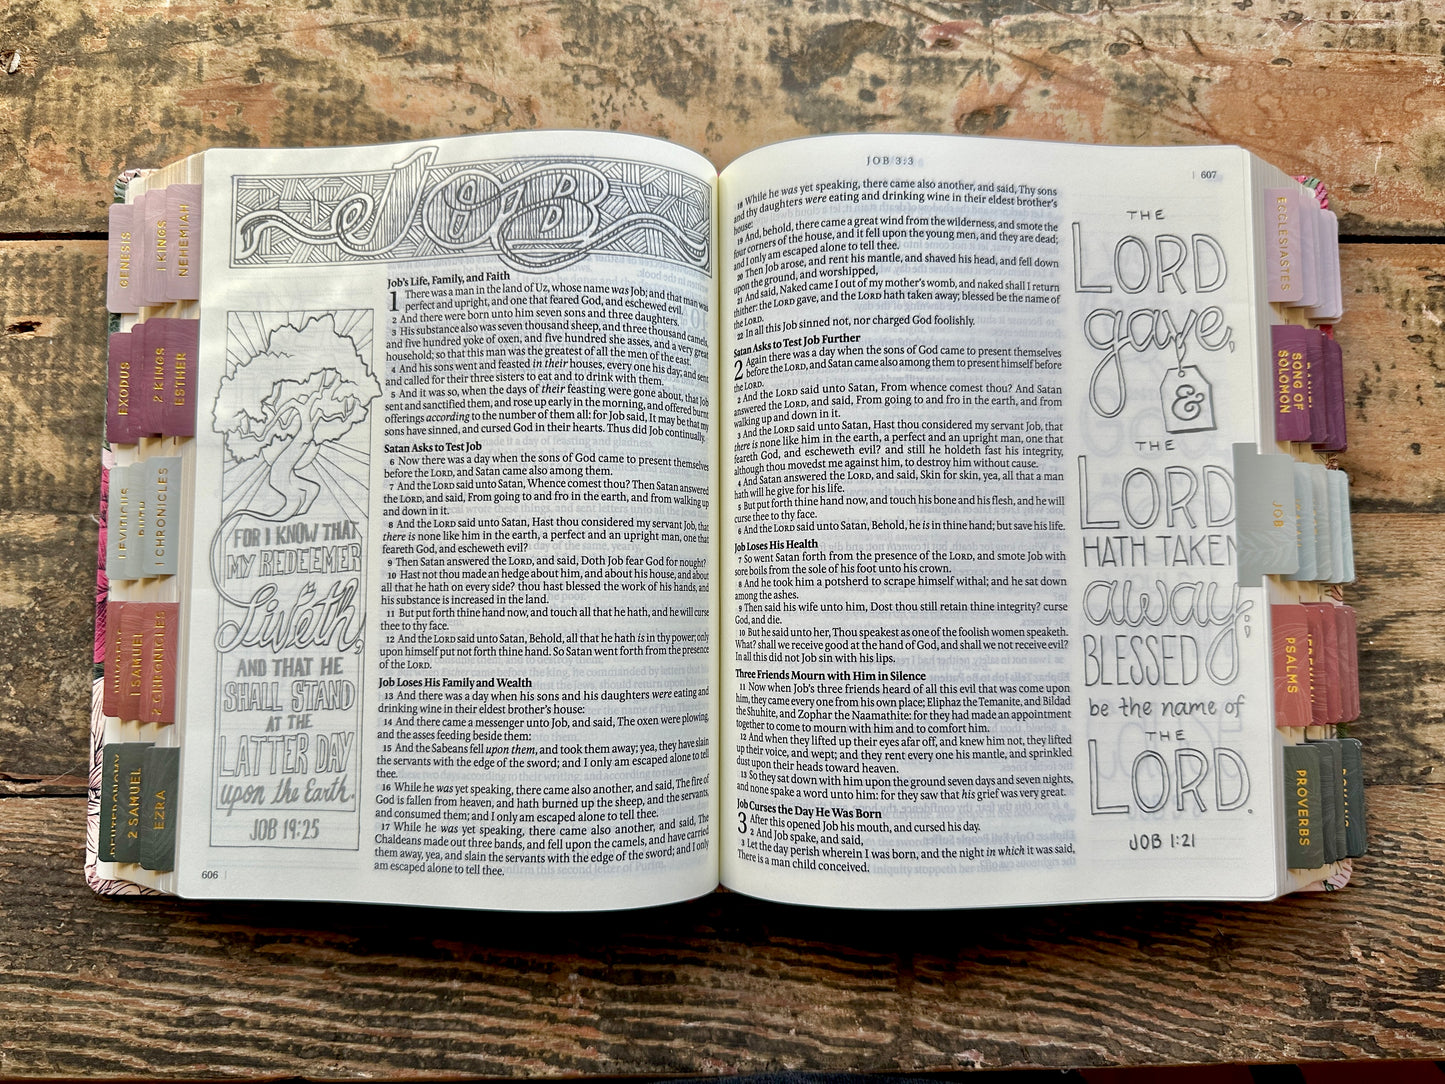 JOB
Job's Life, Family, and Faith
1 There was a man in the land of Uz, whose name was Job; and that man was
perfect and upright, and one that feared God, and eschewed evil.
2 And there were born unto him seven sons and three daughters.
3 His substance also was seven thousand sheep, and three thousand camels,
and five hundred yoke of oxen, and five hundred she asses, and a very great
household; so that this man was the greatest of all the men of the east.
4 And his sons went and feasted in their houses, every one his day; and sent
and called for their three sisters to eat and to drink with them.
5 And it was so, when the days of their feasting were gone about, that Job
sent and sanctified them, and rose up early in the morning, and offered burnt
offerings according to the number of them all: for Job said, It may be that my
sons have sinned, and cursed God in their hearts. Thus did Job continually.
Satan Asks to Test Job
6 Now there was a day when the sons of God came to present themselves
before the LORD, and Satan came also among them.
7 And the LORD said unto Satan, Whence comest thou? Then Satan answered
the LORD, and said, From going to and fro in the earth, and from walking up
and down in it.
8 And the LORD said unto Satan, Hast thou considered my servant Job, that
there is none like him in the earth, a perfect and an upright man, one that
feareth God, and escheweth evil?
9 Then Satan answered the LORD, and said, Doth Job fear God for nought?
10 Hast not thou made an hedge about him, and about his house, and about
all that he hath on every side? thou hast blessed the work of his hands, and
his substance is increased in the land.
11 But put forth thine hand now, and touch all that he hath, and he will curse
thee to thy face.
12 And the LORD said unto Satan, Behold, all that he hath is in thy power; only
upon himself put not forth thine hand. So Satan went forth from the presence
of the LORD.
Job Loses His Family and Wealth
13 And there was a day when his sons and his daughters were eating and
drinking wine in their eldest brother's house:
14 And there came a messenger unto Job, and said, The oxen were plowing,
and the asses feeding beside them:
15 And the Sabeans fell upon them, and took them away; yea, they have slain
the servants with the edge of the sword; and I only am escaped alone to tell
thee.
16 While he was yet speaking, there came also another, and said, The fire of
God is fallen from heaven, and hath burned up the sheep, and the servants,
and consumed them; and I only am escaped alone to tell thee.
17 While he was yet speaking, there came also another, and said, The
Chaldeans made out three bands, and fell upon the camels, and have carried
them away, yea, and slain the servants with the edge of the sword; and I only
am escaped alone to tell thee.
FOR I KNOW THAT
MY REDEEMER
Liveth,
AND THAT HE
SHALL STAND
AT THE
LATTER DAY
upon the Earth.
JOB 19:25
606
JOB 3:3
607
18 While he was yet speaking, there came also another, and said, Thy sons
and thy daughters were eating and drinking wine in their eldest brother's
house:
19 And, behold, there came a great wind from the wilderness, and smote the
four corners of the house, and it fell upon the young men, and they are dead;
and I only am escaped alone to tell thee.
20 Then Job arose, and rent his mantle, and shaved his head, and fell down
upon the ground, and worshipped,
21 And said, Naked came I out of my mother's womb, and naked shall I return
thither: the LORD gave, and the LORD hath taken away; blessed be the name of
the LORD.
22 In all this Job sinned not, nor charged God foolishly.
Satan Asks to Test Job Further
2 Again there was a day when the sons of God came to present themselves
before the LORD, and Satan came also among them to present himself before
the LORD.
2 And the LORD said unto Satan, From whence comest thou? And Satan
answered the LORD, and said, From going to and fro in the earth, and from
walking up and down in it.
3 And the LORD said unto Satan, Hast thou considered my servant Job, that
there is none like him in the earth, a perfect and an upright man, one that
feareth God, and escheweth evil? and still he holdeth fast his integrity,
although thou movedst me against him, to destroy him without cause.
4 And Satan answered the LORD, and said, Skin for skin, yea, all that a man
hath will he give for his life.
5 But put forth thine hand now, and touch his bone and his flesh, and he will
curse thee to thy face.
6 And the LORD said unto Satan, Behold, he is in thine hand; but save his life.
Job Loses His Health
7 So went Satan forth from the presence of the LORD, and smote Job with
sore boils from the sole of his foot unto his crown.
8 And he took him a potsherd to scrape himself withal; and he sat down
among the ashes.
9 Then said his wife unto him, Dost thou still retain thine integrity? curse
God, and die.
10 But he said unto her, Thou speakest as one of the foolish women speaketh.
What? shall we receive good at the hand of God, and shall we not receive evil?
In all this did not Job sin with his lips.
Three Friends Mourn with Him in Silence
11 Now when Job's three friends heard of all this evil that was come upon
him, they came every one from his own place; Eliphaz the Temanite, and Bildad
the Shuhite, and Zophar the Naamathite: for they had made an appointment
together to come to mourn with him and to comfort him.
12 And when they lifted up their eyes afar off, and knew him not, they lifted
up their voice, and wept; and they rent every one his mantle, and sprinkled
dust upon their heads toward heaven.
13 So they sat down with him upon the ground seven days and seven nights,
and none spake a word unto him: for they saw that his grief was very great.
Job Curses the Day He Was Born
3 After this opened Job his mouth, and cursed his day.
2 And Job spake, and said,
3 Let the day perish wherein I was born, and the night in which it was said,
There is a man child conceived.
THE
LORD
gave,
&
THE
LORD
HATH TAKEN
away;
BLESSED
be the name of
THE
LORD.
JOB 1:21
GENESIS
1 KINGS
NEHEMIAH
EXODUS
2 KINGS
ESTHER
LEVITICUS
1 CHRONICLES
1 SAMUEL
2 CHRONICLES
2 SAMUEL
EZRA
ECCLESIASTES
SONG OF
SOLOMON
JOB
PSALMS
PROVERBS